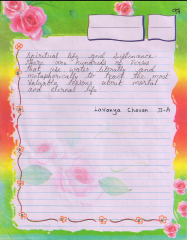 Spiritual life and sustenance
There are hundreds of verses
that use water literally and
metaphorically to teach the most
valuable lessons about mortal
and eternal life.
Lavanya Chavan II-A